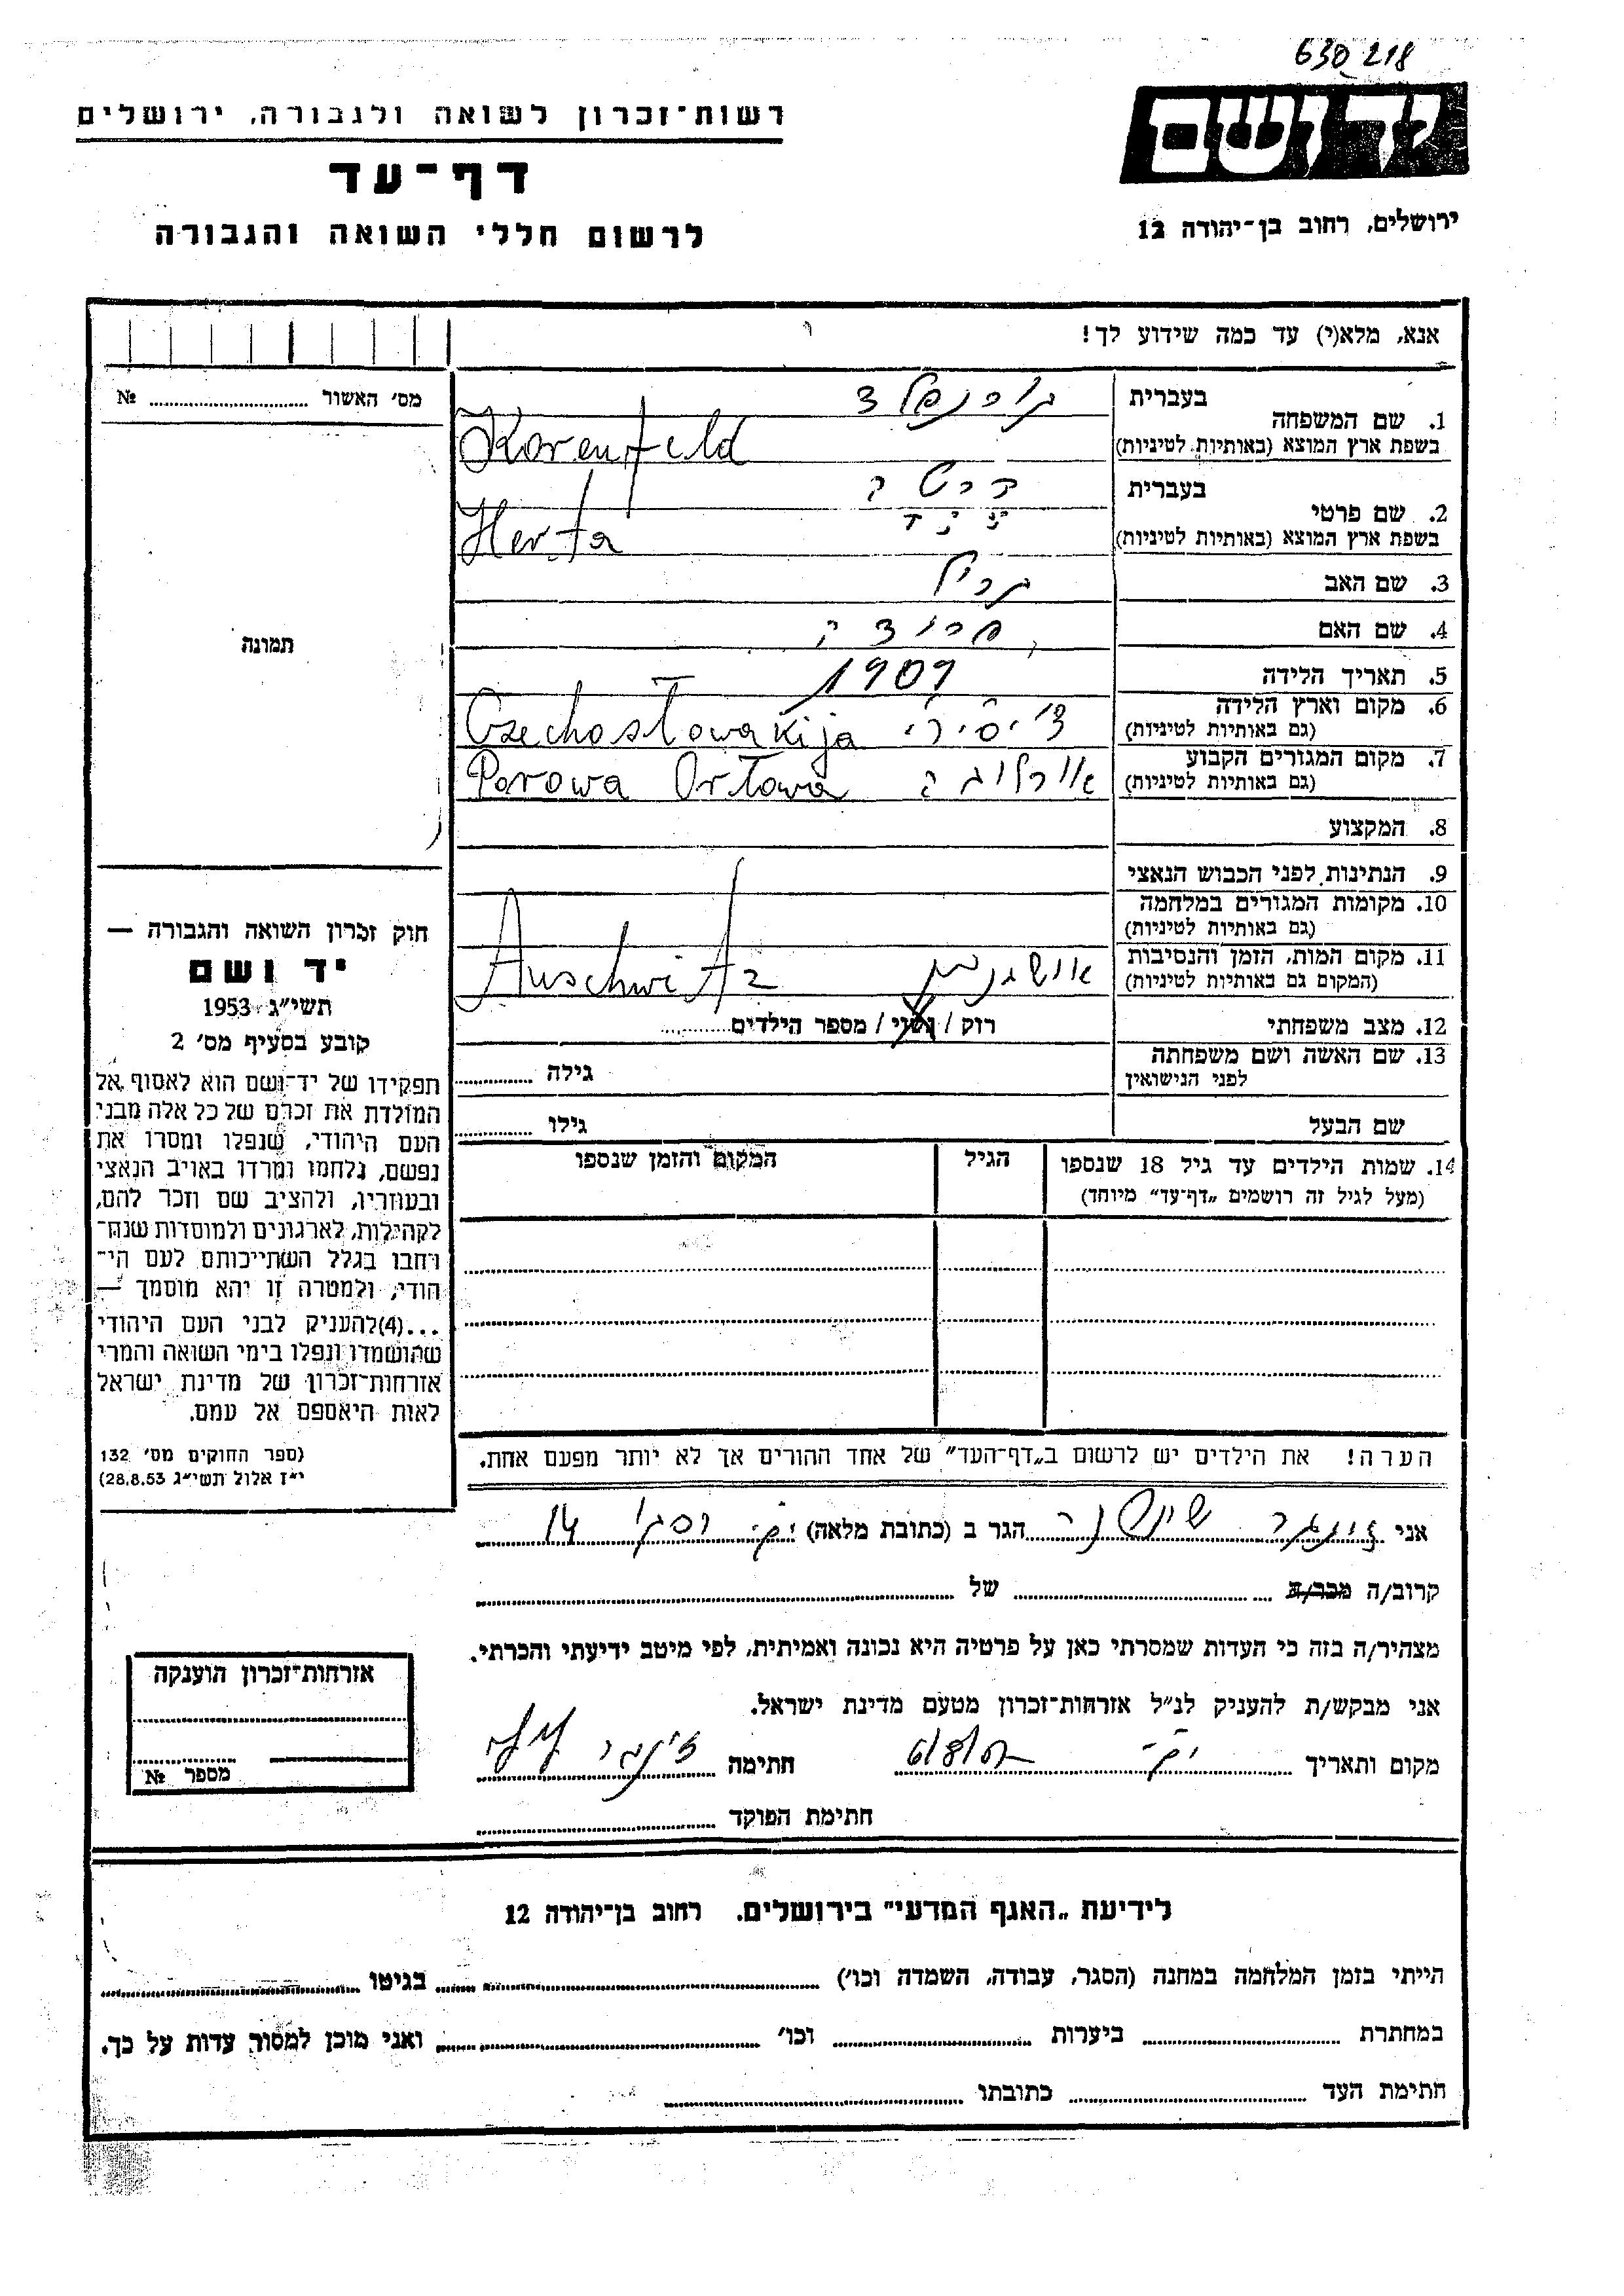 630218
יד ושם
ירושלים, רחוב בן־יהודה 12
רשות־זכרון לשואה ולגבורה, ירושלים
דף־עד
לרשום חללי השואה והגבורה
אנא, מלא(י) עד כמה שידוע לך!
מס׳ האשור № 
תמונה
1. שם המשפחה
בעברית קורנפלד
בשפת ארץ המוצא (באותיות לטיניות) Korenfeld
2. שם פרטי
בעברית הרטה
בשפת ארץ המוצא (באותיות לטיניות) Herta
3. שם האב
4. שם האם
5. תאריך הלידה 1909
6. מקום וארץ הלידה
(גם באותיות לטיניות) Czechosłowakija
7. מקום המגורים הקבוע אורלובה
(גם באותיות לטיניות) Porowa Orłowa
8. המקצוע
9. הנתינות לפני הכבוש הנאצי
10. מקומות המגורים במלחמה
(גם באותיות לטיניות)
11. מקום המות, הזמן והנסיבות
(המקום גם באותיות לטיניות) Auschwitz
12. מצב משפחתי רוק / נשוי / מספר הילדים
13. שם האשה ושם משפחתה
לפני הנישואין גילה
שם הבעל גילו
14. שמות הילדים עד גיל 18 שנספו הגיל המקום והזמן שנספו
(מעל לגיל זה רושמים „דף־עד״ מיוחד)
הערה! את הילדים יש לרשום ב„דף־העד״ של אחד ההורים אך לא יותר מפעם אחת.
חוק זכרון השואה והגבורה —
יד ושם
תשי״ג 1953
קובע בסעיף מס׳ 2
תפקידו של יד־ושם הוא לאסוף אל
המולדת את זכרם של כל אלה מבני
העם היהודי, שנפלו ומסרו את
נפשם, נלחמו ומרדו באויב הנאצי
ובעוזריו, ולהציב שם וזכר להם,
לקהילות, לארגונים ולמוסדות שנח־
רבו בגלל השתייכותם לעם הי־
הודי, ולמטרה זו יהא מוסמך —
...(4)להעניק לבני העם היהודי
שהושמדו ונפלו בימי השואה והמרי
אזרחות־זכרון של מדינת ישראל
לאות היאספם אל עמם.
(ספר החוקים מס׳ 132
י״ז אלול תשי״ג 28.8.53)
אני הגר ב (כתובת מלאה) 14
קרוב/ה מכר/ה של
מצהיר/ה בזה כי העדות שמסרתי כאן על פרטיה היא נכונה ואמיתית, לפי מיטב ידיעתי והכרתי.
אני מבקש/ת להעניק לנ״ל אזרחות־זכרון מטעם מדינת ישראל.
מקום ותאריך חתימה
חתימת הפוקד
אזרחות־זכרון הוענקה
מספר №
לידיעת „האגף המדעי״ בירושלים, רחוב בן־יהודה 12
הייתי בזמן המלחמה במחנה (הסגר, עבודה, השמדה וכו׳) בגיטו
במחתרת ביערות וכו׳ ואני מוכן למסור עדות על כך.
חתימת העד כתובתו